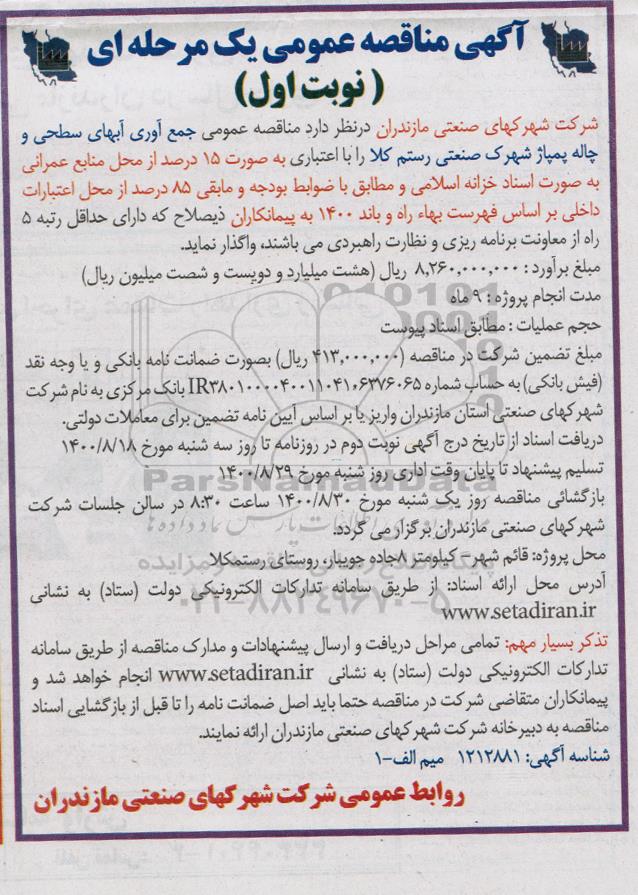 آگهی مناقصه عمومی یک مرحله ای
( نوبت اول)
شرکت شهرکهای صنعتی مازندران درنظر دارد مناقصه عمومی جمع آوری آبهای سطحی و
چاله پمپاژ شهرک صنعتی رستم کلا را با اعتباری به صورت ۱۵ درصد از محل منابع عمرانی
به صورت اسناد خزانه اسلامی و مطابق با ضوابط بودجه و مابقی ۸۵ درصد از محل اعتبارات
داخلی بر اساس فهرست بهاء راه و باند ۱۴۰۰ به پیمانکاران ذیصلاح که دارای حداقل رتبه ۵
راه از معاونت برنامه ریزی و نظارت راهبردی می باشند، واگذار نماید.
مبلغ برآورد : ۸,۲۶۰,۰۰۰,۰۰۰ ریال (هشت میلیارد و دویست و شصت میلیون ریال)
مدت انجام پروژه : ۹ ماه
حجم عملیات : مطابق اسناد پیوست
مبلغ تضمین شرکت در مناقصه (۴۱۳,۰۰۰,۰۰۰ ریال) بصورت ضمانت نامه بانکی و یا وجه نقد
(فیش بانکی) به حساب شماره IR۳۸۰۱۰۰۰۰۴۰۰۱۱۰۴۱۰۶۳۷۶۰۶۵ بانک مرکزی به نام شرکت
شهرکهای صنعتی استان مازندران واریز یا بر اساس آیین نامه تضمین برای معاملات دولتی.
دریافت اسناد از تاریخ درج آگهی نوبت دوم در روزنامه تا روز سه شنبه مورخ ۱۴۰۰/۸/۱۸
تسلیم پیشنهاد تا پایان وقت اداری روز شنبه مورخ ۱۴۰۰/۸/۲۹
بازگشائی مناقصه روز یک شنبه مورخ ۱۴۰۰/۸/۳۰ ساعت ۸:۳۰ در سالن جلسات شرکت
شهرکهای صنعتی مازندران برگزار می گردد.
محل پروژه: قائم شهر- کیلومتر ۸جاده جویبار، روستای رستمکلا
آدرس محل ارائه اسناد: از طریق سامانه تدارکات الکترونیکی دولت (ستاد) به نشانی
www.setadiran.ir
تذکر بسیار مهم: تمامی مراحل دریافت و ارسال پیشنهادات و مدارک مناقصه از طریق سامانه
تدارکات الکترونیکی دولت (ستاد) به نشانی www.setadiran.ir انجام خواهد شد و
پیمانکاران متقاضی شرکت در مناقصه حتما باید اصل ضمانت نامه را تا قبل از بازگشایی اسناد
مناقصه به دبیرخانه شرکت شهرکهای صنعتی مازندران ارائه نمایند.
شناسه آگهی: ۱۲۱۲۸۸۱ میم الف-۱
روابط عمومی شرکت شهرکهای صنعتی مازندران
ParsNamadData